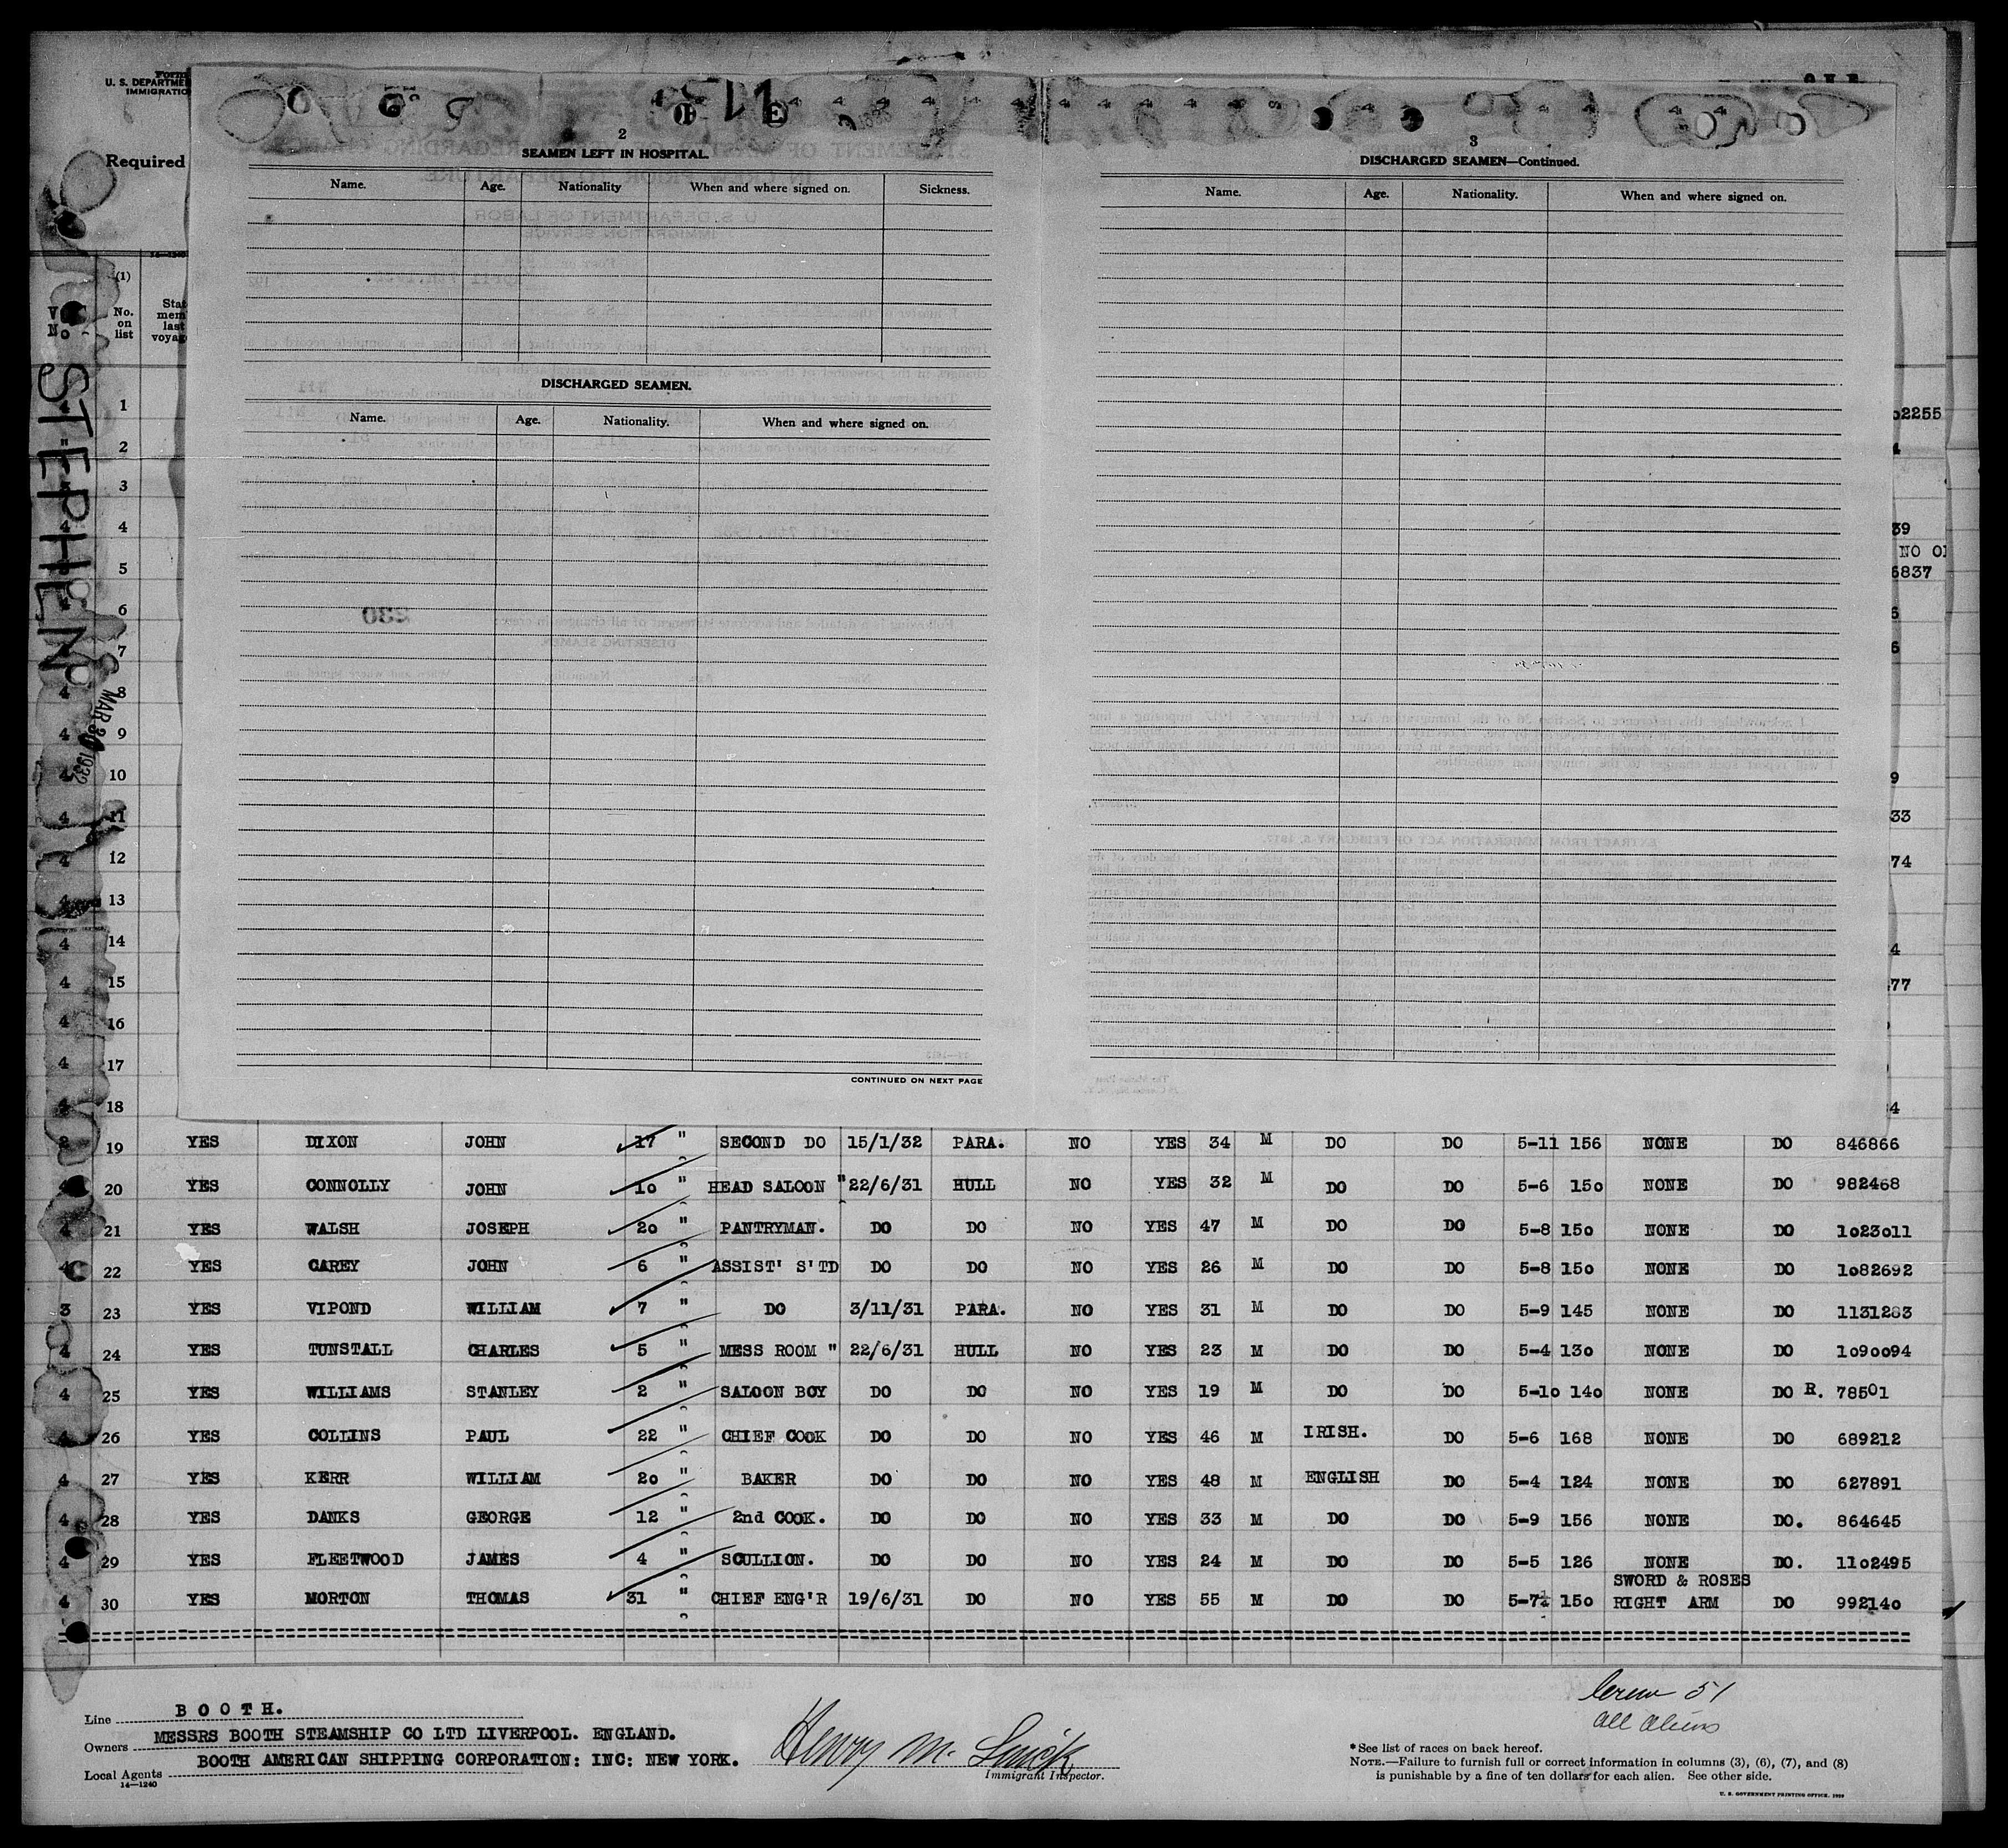 U. S. DEPARTME
IMMIGRATIO
Required
2
SEAMEN LEFT IN HOSPITAL.
Name. Age. Nationality When and where signed on. Sickness.
DISCHARGED SEAMEN.
Name. Age. Nationality. When and where signed on.
CONTINUED ON NEXT PAGE
3
DISCHARGED SEAMEN—Continued.
Name. Age. Nationality. When and where signed on.
(1)
No. on list
STEPHEN
MAR 30 1932
1 2255
2
3
4 39
NO
5 6837
6 6
7 6
8
9
10 9
11 33
12 74
13
14 4
15 77
16
17
18 4
19 YES DIXON JOHN 17 " SECOND DO 15/1/32 PARA. NO YES 34 M DO DO 5-11 156 NONE DO 846866
4 20 YES CONNOLLY JOHN 10 " HEAD SALOON " 22/6/31 HULL NO YES 32 M DO DO 5-6 150 NONE DO 982468
4 21 YES WALSH JOSEPH 20 " PANTRYMAN. DO DO NO YES 47 M DO DO 5-8 150 NONE DO 1023011
4 22 YES CAREY JOHN 6 " ASSIST' S'TD DO DO NO YES 26 M DO DO 5-8 150 NONE DO 1082692
3 23 YES VIPOND WILLIAM 7 " DO 3/11/31 PARA. NO YES 31 M DO DO 5-9 145 NONE DO 1131283
4 24 YES TUNSTALL CHARLES 5 " MESS ROOM " 22/6/31 HULL NO YES 23 M DO DO 5-4 130 NONE DO 1090094
4 25 YES WILLIAMS STANLEY 2 " SALOON BOY DO DO NO YES 19 M DO DO 5-10 140 NONE DO R. 78501
4 26 YES COLLINS PAUL 22 " CHIEF COOK DO DO NO YES 46 M IRISH. DO 5-6 168 NONE DO 689212
4 27 YES KERR WILLIAM 20 " BAKER DO DO NO YES 48 M ENGLISH DO 5-4 124 NONE DO 627891
4 28 YES DANKS GEORGE 12 " 2nd COOK. DO DO NO YES 33 M DO DO 5-9 156 NONE DO. 864645
4 29 YES FLEETWOOD JAMES 4 " SCULLION. DO DO NO YES 24 M DO DO 5-5 126 NONE DO. 1102495
4 30 YES MORTON THOMAS 31 " CHIEF ENG'R 19/6/31 DO NO YES 55 M DO DO 5-7½ 150 SWORD & ROSES RIGHT ARM DO 992140
Line BOOTH.
Owners MESSRS BOOTH STEAMSHIP CO LTD LIVERPOOL. ENGLAND.
Local Agents BOOTH AMERICAN SHIPPING CORPORATION: INC: NEW YORK.
14—1240
Henry M.
Immigrant Inspector.
Crew 51
all aliens
*See list of races on back hereof.
NOTE.—Failure to furnish full or correct information in columns (3), (6), (7), and (8)
is punishable by a fine of ten dollars for each alien. See other side.
U. S. GOVERNMENT PRINTING OFFICE.